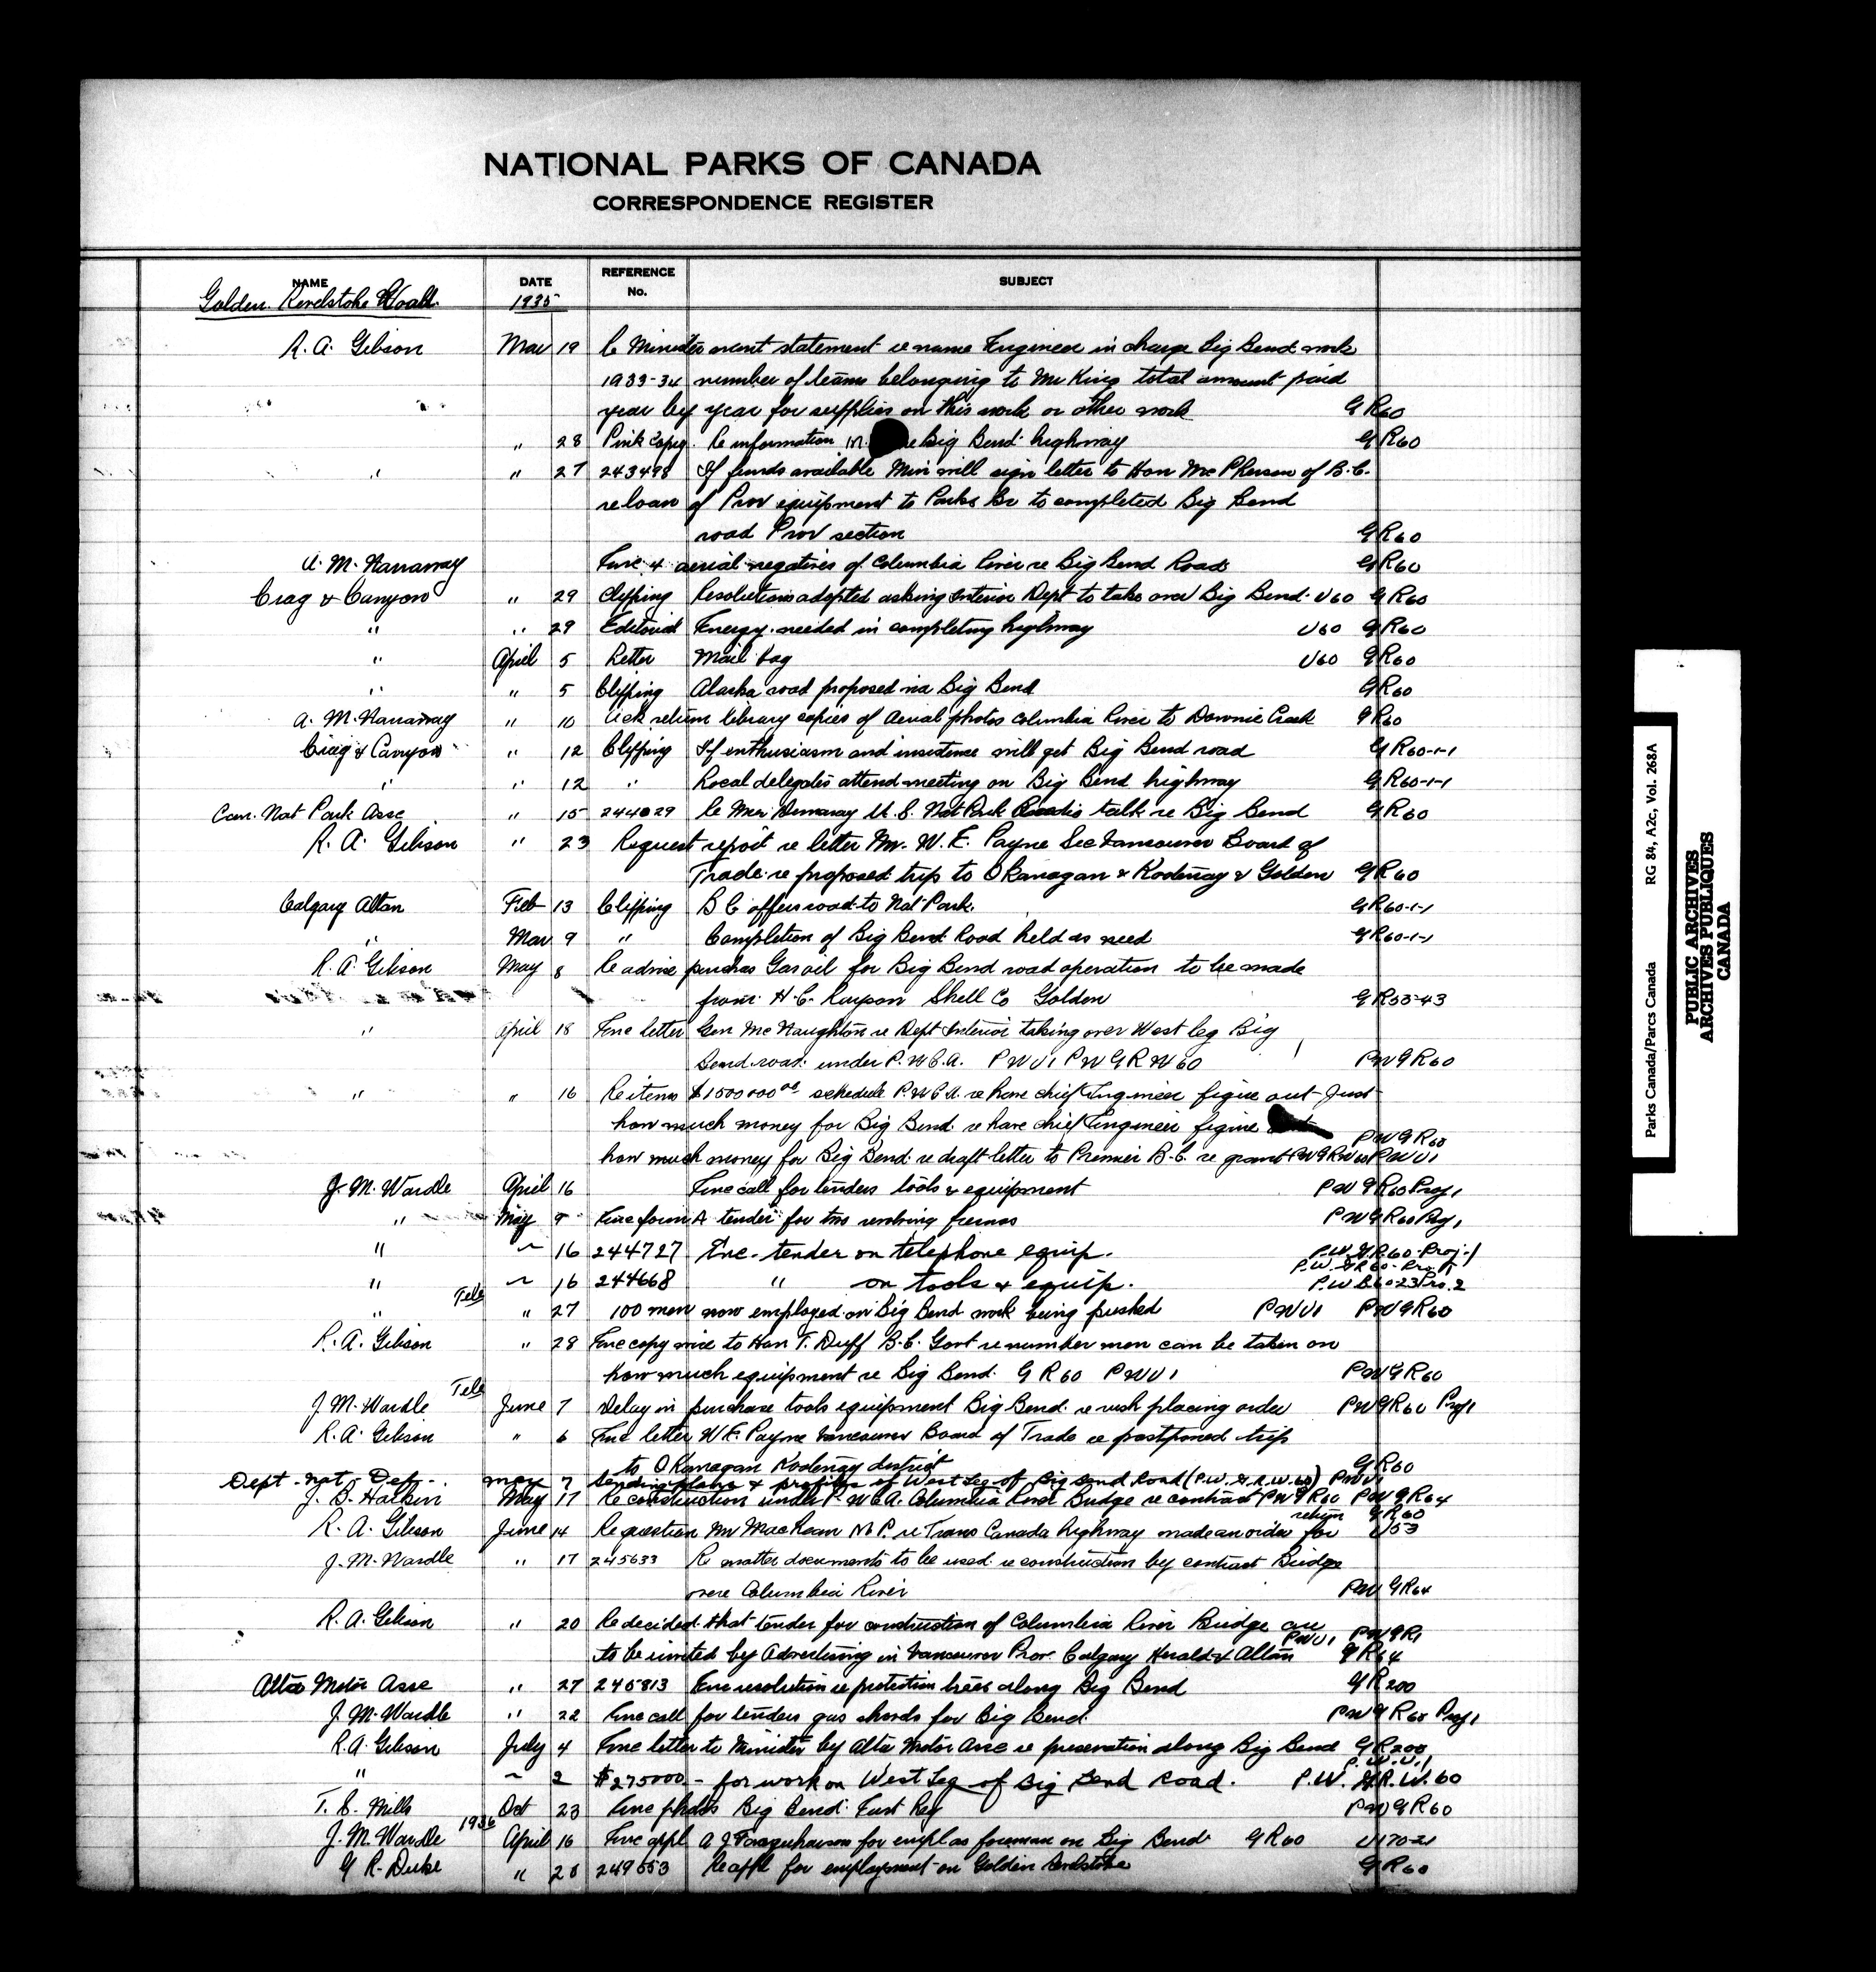 NATIONAL PARKS OF CANADA
CORRESPONDENCE REGISTER
NAME DATE REFERENCE No. SUBJECT
Golden Revelstoke Road 1935
R. A. Gibson Mar 19 Re Minister want statement re name Engineer in charge Big Bend work
1933-34 number of teams belonging to Mr King total amount paid
year by year for supplies on this work or other work GR60
" 28 Pink Copy. Re information M. re Big Bend highway GR60
" " 27 243498 If funds available Min will sign letter to Hon McPherson of B.C.
re loan of Prov equipment to Parks Br to completed Big Bend
road Prov section GR60
A. M. Narraway Enc 4 aerial negatives of Columbia River re Big Bend Road GR60
Crag & Canyon " 29 Clipping Resolutions adopted asking Interior Dept to take over Big Bend U60 GR60
" " 29 Editorial Energy needed in completing highway U60 GR60
" April 5 Letter Mail bag U60 GR60
" " 5 Clipping Alaska road proposed via Big Bend GR60
A. M. Narraway " 10 Ack return library copies of Aerial photos Columbia River to Downie Creek GR60
Crag & Canyon " 12 Clipping If enthusiasm and insistence will get Big Bend road GR60-1-1
" " 12 " Local delegates attend meeting on Big Bend highway GR60-1-1
Can. Nat Park Asse " 15 244029 Re Demaray U.S. Nat Park Radio talk re Big Bend GR60
R. A. Gibson " 23 Request report re letter Mr. W. E. Payne Sec Vancouver Board of
Trade re proposed trip to Okanagan & Kootenay & Golden GR60
Calgary Altan Feb 13 Clipping B C offers road to Nat Park. GR60-1-1
" Mar 9 " Completion of Big Bend Road held as need GR60-1-1
R. A. Gibson May 8 Re advise purchas Gas oil for Big Bend road operation to be made
from H. C. Shell Co Golden GR55-43
" April 18 Enc letter Gen McNaughton re Dept Interior taking over West leg Big
Bend road under P.W.C.A. PWU1 PWGRW60 PWGR60
" " 16 Re item $1500000.00 schedule P.W.C.A. re have chief Engineer figure out Just
how much money for Big Bend re have chief Engineer figure PWGR60
how much money for Big Bend re draft letter to Premier B.C. re grant PWGRW60 PWU1
J. M. Wardle April 16 Enc call for tenders tools & equipment PWGR60 Proj 1
" May 9 Enc form A tender for two revolving PWGR60 Proj 1
" " 16 244727 Enc. tender on telephone equip. P.W.G.R.60-Proj-1
P.W.GR60-Pro.1
" " 16 244668 " on tools & equip. P.W.B6023Pro.2
" Tele " 27 100 men now employed on Big Bend work being pushed PWU1 PWGR60
R. A. Gibson " 28 Enc copy wire to Hon T. Duff B.C. Govt re number men can be taken on
how much equipment re Big Bend. GR60 PWU1 PWGR60
J. M. Wardle Tele June 7 Delay in purchase tools equipment Big Bend re rush placing order PWGR60 Proj 1
R. A. Gibson " 6 Enc letter W E. Payne Vancouver Board of Trade re postponed trip
to Okanagan Kootenay district GR60
Dept. Nat. Def. May 7 Sending plans & profiles of West Leg of Big Bend Road (P.W.G.R.W.60) PWU1
J. B. Harkin May 17 Re construction under P.W.C.A. Columbia River Bridge re contract PWGR60 PWGR64
R. A. Gibson June 14 Re question Mr MacLean M P. re Trans Canada highway made an order for return GR60 U53
J. M. Wardle " 17 245633 Re matter documents to be used re construction by contract Bridge
over Columbia River PWGR64
R. A. Gibson " 20 Re decided that tender for construction of Columbia River Bridge are
to be invited by Advertising in Vancouver Prov Calgary Herald & Altan PWU1 PWGR1 GR64
Alta Motor Asse " 27 245813 Enc resolution re protection trees along Big Bend GR200
J. M. Wardle " 22 Enc call for tenders gas for Big Bend PWGR60 Proj 1
R. A. Gibson July 4 Enc letter to Minister by Alta Motor Asse re preservation along Big Bend GR200
" " 2 $275000 - for work on West Leg of Big Bend Road. P.W.U.1 P.W.G.R.W.60
T. S. Mills Oct 23 Enc photos Big Bend East Leg PWGR60
J. M. Wardle 1936 April 16 Enc appl A J Farquharson for empl as foreman on Big Bend GR60 U170-21
G R. Duke " 28 249553 Re appl for employment on Golden Revelstoke GR60
Parks Canada/Parcs Canada RG 84, A2c, Vol. 268A
PUBLIC ARCHIVES
ARCHIVES PUBLIQUES
CANADA